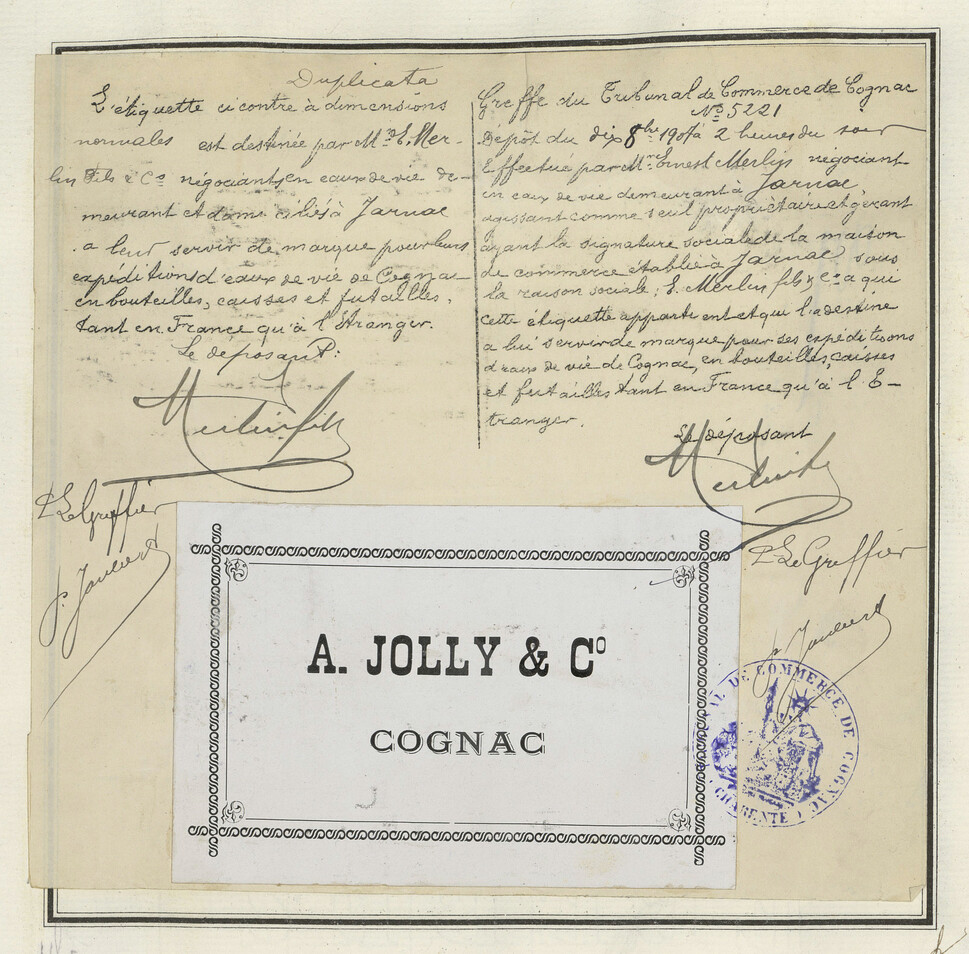 Duplicata
L'étiquette ci contre à dimensions
normales est destinée par Mrs E. Mer-
lin Fils & Cie négociants en eaux de vie de-
meurant et domiciliés à Jarnac
a leur servir de marque pour leurs
expéditions d'eaux de vie de Cognac
en bouteilles, caisses et futailles,
tant en France qu'à l'Etranger.
Le déposant:
Merlin fils
P Le Greffier
Greffe du Tribunal de Commerce de Cognac
No 5221
Dépôt du dix 8bre 1907 à 2 heures du soir
Effectué par Mr Ernest Merlin négociant
en eaux de vie demeurant à Jarnac,
agissant comme seul propriétaire et gérant
ayant la signature sociale de la maison
de commerce établie à Jarnac sous
la raison sociale; E. Merlin fils & Cie a qui
cette étiquette appartient et qui l'a destine
a lui servir de marque pour ses expéditions
d'eaux de vie de Cognac, en bouteilles, caisses
et futailles tant en France qu'à l'E-
tranger.
Le déposant
Merlin fils
P Le Greffier
A. JOLLY & Co
COGNAC
AL DE COMMERCE DE COGNAC
(CHARENTE)